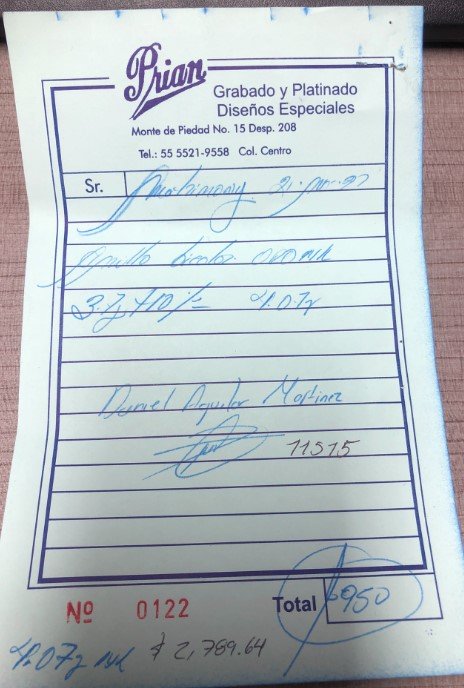 Prian
Grabado y Platinado
Diseños Especiales
Monte de Piedad No. 15 Desp. 208
Tel.: 55 5521-9558 Col. Centro
Sr.
3.7g +10%= 4.07g
Daniel Aguilar Martinez
11515
Nº 0122
Total $950
4.07g $ 2,789.64